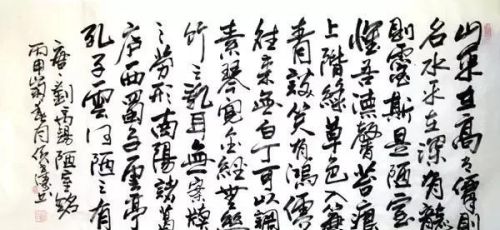 山不在高有僊則
名水不在深有龍
則靈斯是陋室
惟吾德馨苔痕
上階綠草色入簾
青談笑有鴻儒
往來無白丁可以調
素琴閱金經無絲
竹之亂耳無案牘
之勞形南陽諸葛
廬西蜀子雲亭
孔子雲何陋之有
唐劉禹錫陋室銘
丙申歲春月書